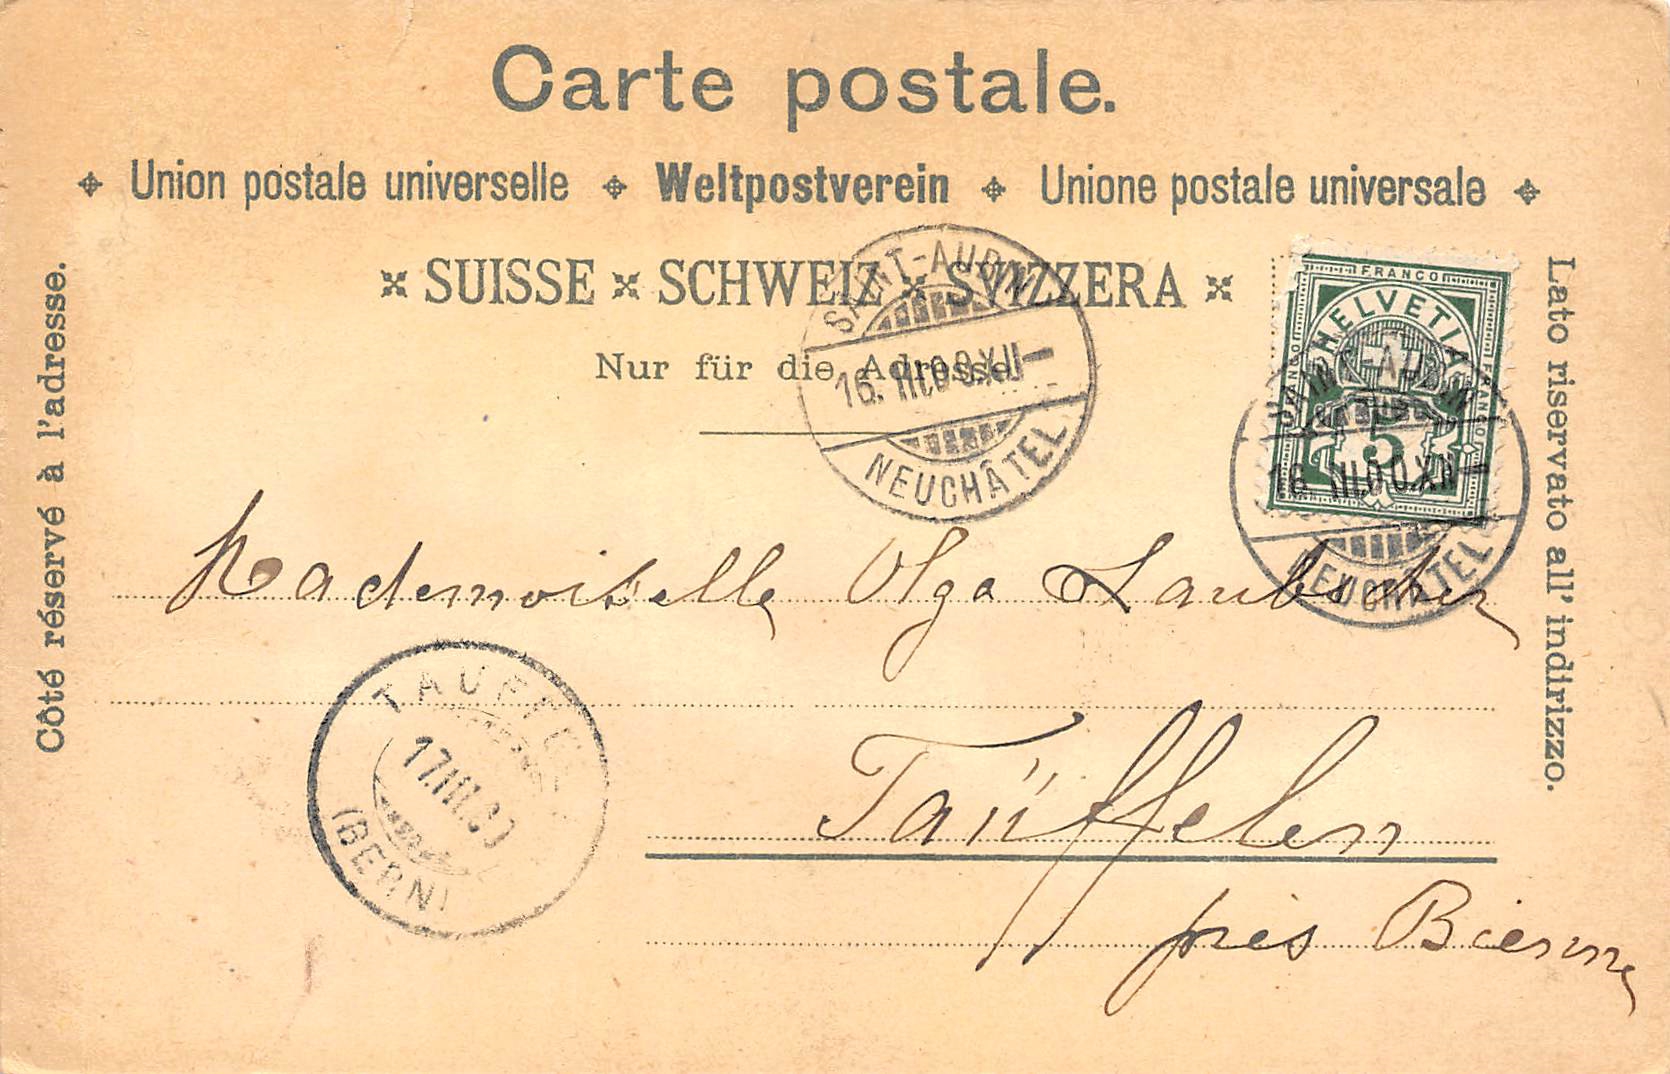 Carte postale.
Union postale universelle Weltpostverein Unione postale universale
SUISSE SCHWEIZ SVIZZERA
Nur für die Adresse
Côté réservé à l'adresse.
Lato riservato all' indirizzo.
FRANCO
HELVETIA
FRANCO
FRANCO
5
SAINT-AUBIN
16. III.00.XII—
NEUCHÂTEL
SAINT-AUBIN
16. III.00.XII—
NEUCHÂTEL
Mademoiselle Olga Laubscher
Täüffelen
près Bienne
17.III.00
(BERN)